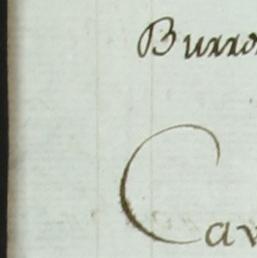 Burro
Cav